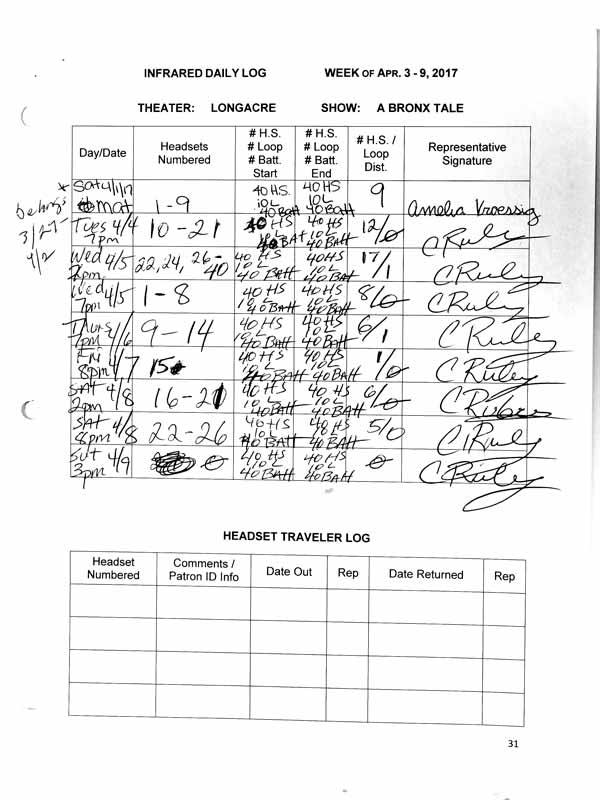 INFRARED DAILY LOG WEEK OF APR. 3 - 9, 2017
THEATER: LONGACRE SHOW: A BRONX TALE
Day/Date
Headsets
Numbered
# H.S.
# Loop
# Batt.
Start
# H.S.
# Loop
# Batt.
End
# H.S. /
Loop
Dist.
Representative
Signature
* belongs
3/27-
4/2
Sat 4/1/17
mat
1-9
40 HS.
10L
40 Batt
40 HS
10L
40 Batt
9
Amelia
Tues 4/4
7pm
10-21
40 HS
10L
40 BAT
40 HS
10L
40 BAtt
12/0
C Ruley
Wed 4/5
2pm
22, 24, 26-
40
40 HS
10L
40 BAtt
40HS
10L
40 BAt
17/1
C Ruley
Wed 4/5
7pm
1-8
40 HS
10L
40 BAtt
40 HS
10L
40 BAtt
8/0
C Ruley
Thurs 4/6
7pm
9-14
40 HS
10L
40 BAtt
40 HS
10L
40 BAtt
6/1
C Ruley
Fri 4/7
8pm
15
40 HS
10L
40 BAtt
40 HS
10L
40 BAtt
1/0
C Ruley
SAt 4/8
2pm
16-21
40 HS
10L
40 BAtt
40 HS
10L
40 BAtt
6/0
SAt 4/8
8pm
22-26
40 HS
10L
40 BAtt
40 HS
10L
40 BAtt
5/0
C Ruley
3pm 4/9
0
40 HS
10L
40 BAtt
40 HS
10L
40 BAtt
0
C Ruley
HEADSET TRAVELER LOG
Headset
Numbered
Comments /
Patron ID Info
Date Out
Rep
Date Returned
Rep
31